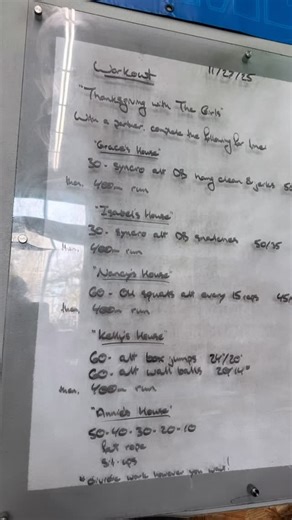 Workout 11/27/25
"Thanksgiving with The Girls"
With a partner complete the following for time
"Grace's House"
30 - syncro alt DB hang clean & jerks 50
then 400m run
"Isabel's House"
30 - syncro alt DB snatches 50/35
then 400m run
"Nancy's House"
60 - OH squats alt every 15 reps 45
then 400m run
"Kelly's House"
60 - alt box jumps 24"/20"
60 - alt wall balls 20/14#
then 400m run
"Annie's House"
50-40-30-20-10
Partner
sit-ups
*divide work however you want!